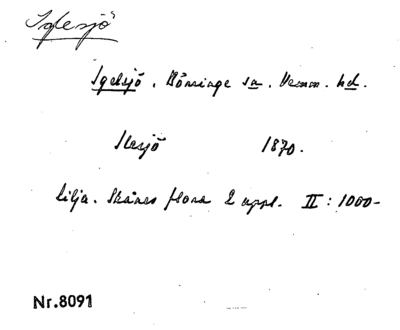 Iglesjö
Igelsjö. Börringe sn. Vemm. hd.
Ilesjö 1870.
Lilja. Skånes flora 2 uppl. II: 1000-
Nr.8091